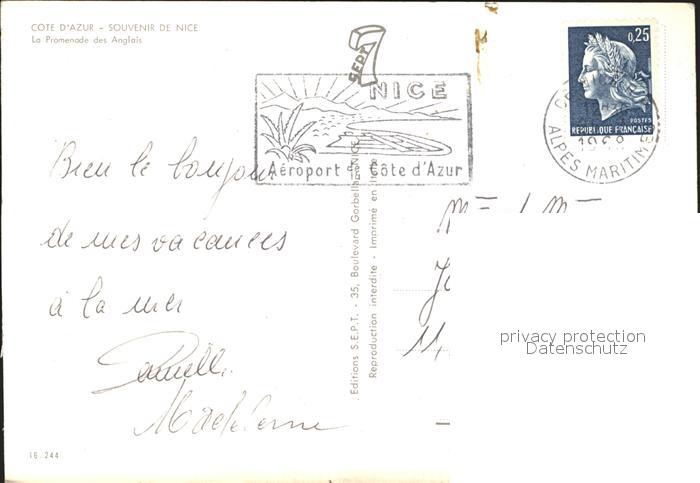 COTE D'AZUR - SOUVENIR DE NICE
La Promenade des Anglais
SEPT
NICE
Aéroport de Côte d'Azur
0,25
POSTES
REPUBLIQUE FRANÇAISE
1968
ALPES MARITIMES
Bien le bonjour
de mes vacances
à la mer
Madeleine
Editions S.E.P.T. - 35, Boulevard Gorbella - NICE
Reproduction interdite - Imprimé en Italie
privacy protection
Datenschutz
16.244